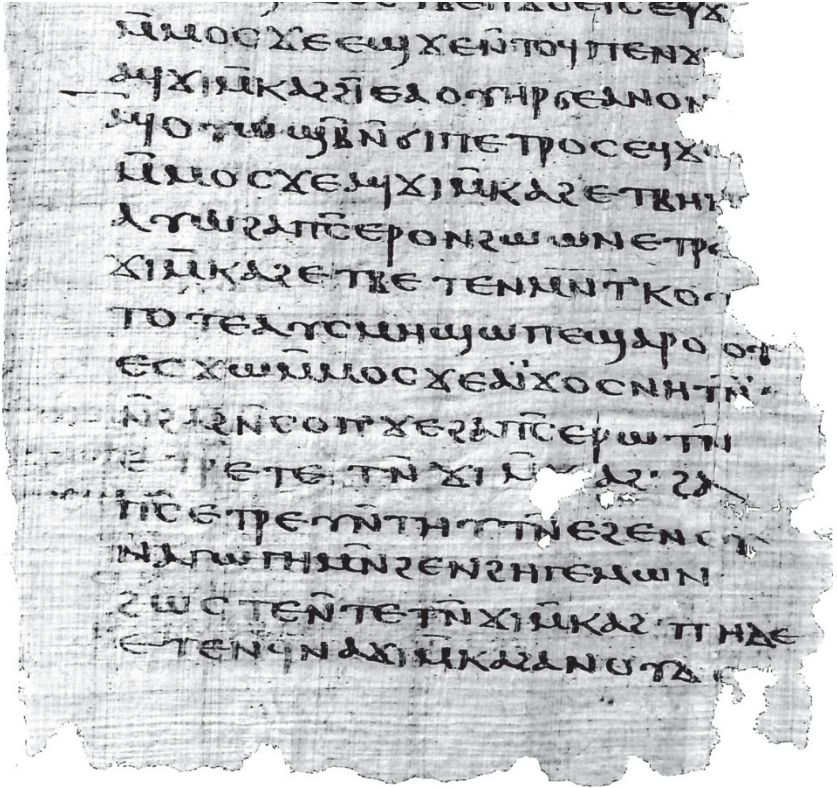 ⲙ̄ⲙⲟⲥ ϫⲉ ⲉϣϫⲉ ⲛ̄ⲧⲟϥ ⲡⲉⲛϫ
ⲁϥϫⲓ ⲙ̄ⲕⲁϩ ϩⲓ̈ⲉ ⲁⲟⲩⲏⲣ ϭⲉ ⲁⲛⲟⲛ
ⲁϥⲟⲩⲱϣⲃ̄ ⲛ̄ϭⲓ ⲡⲉⲧⲣⲟⲥ ⲉϥϫ
ⲙ̄ⲙⲟⲥ ϫⲉ ⲁϥϫⲓ ⲙ̄ⲕⲁϩ ⲉⲧⲃⲏⲏ
ⲁⲩⲱ ϩⲁⲡⲥ̄ ⲉⲣⲟⲛ ϩⲱⲱⲛ ⲉⲧⲣⲉ
ϫⲓ ⲙ̄ⲕⲁϩ ⲉⲧⲃⲉ ⲧⲉⲛⲙⲛ̄ⲧⲕⲟⲩ
ⲧⲟⲧⲉ ⲁⲩⲥⲙⲏ ϣⲱⲡⲉ ϣⲁⲣⲟⲟⲩ
ⲉⲥϫⲱ ⲙ̄ⲙⲟⲥ ϫⲉ ⲁⲓ̈ϫⲟⲥ ⲛⲏⲧⲛ̄
ⲛ̄ϩⲁϩ ⲛ̄ⲥⲟⲡ ϫⲉ ϩⲁⲡⲥ̄ ⲉⲣⲱⲧⲛ̄
ⲉⲧⲣⲉⲧⲉⲧⲛ̄ϫⲓ ⲙ̄ⲕⲁϩ· ϩⲁ
ⲡⲥ̄ ⲉⲧⲣⲉⲩⲛ̄ⲧⲏⲩⲧⲛ̄ ⲉϩⲉⲛⲥⲩ
ⲛⲁⲅⲱⲅⲏ ⲙⲛ̄ ϩⲉⲛϩⲏⲅⲉⲙⲱⲛ
ϩⲱⲥⲧⲉ ⲛ̄ⲧⲉⲧⲛ̄ϫⲓ ⲙ̄ⲕⲁϩ· ⲡⲏ ⲇⲉ
ⲉⲧⲉ ⲛϥⲛⲁϫⲓ ⲙ̄ⲕⲁϩ ⲁⲛ ⲟⲩⲇ